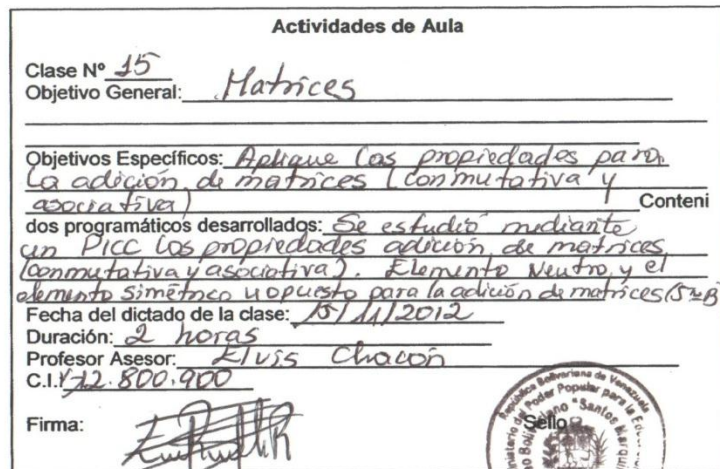 Actividades de Aula
Clase Nº 15
Objetivo General: Matrices
Objetivos Específicos: Aplique las propiedades para
la adición de matrices (conmutativa y
asociativa) Conteni
dos programáticos desarrollados: Se estudió mediante
un Picc las propiedades adición de matrices
(conmutativa y asociativa). Elemento Neutro y el
elemento simétrico u opuesto para la adición de matrices
Fecha del dictado de la clase: 15/11/2012
Duración: 2 horas
Profesor Asesor: Elvis Chacón
C.I. 12.800.900
Firma:
Sello
República Bolivariana de Venezuela
Poder Popular para la
"Santos